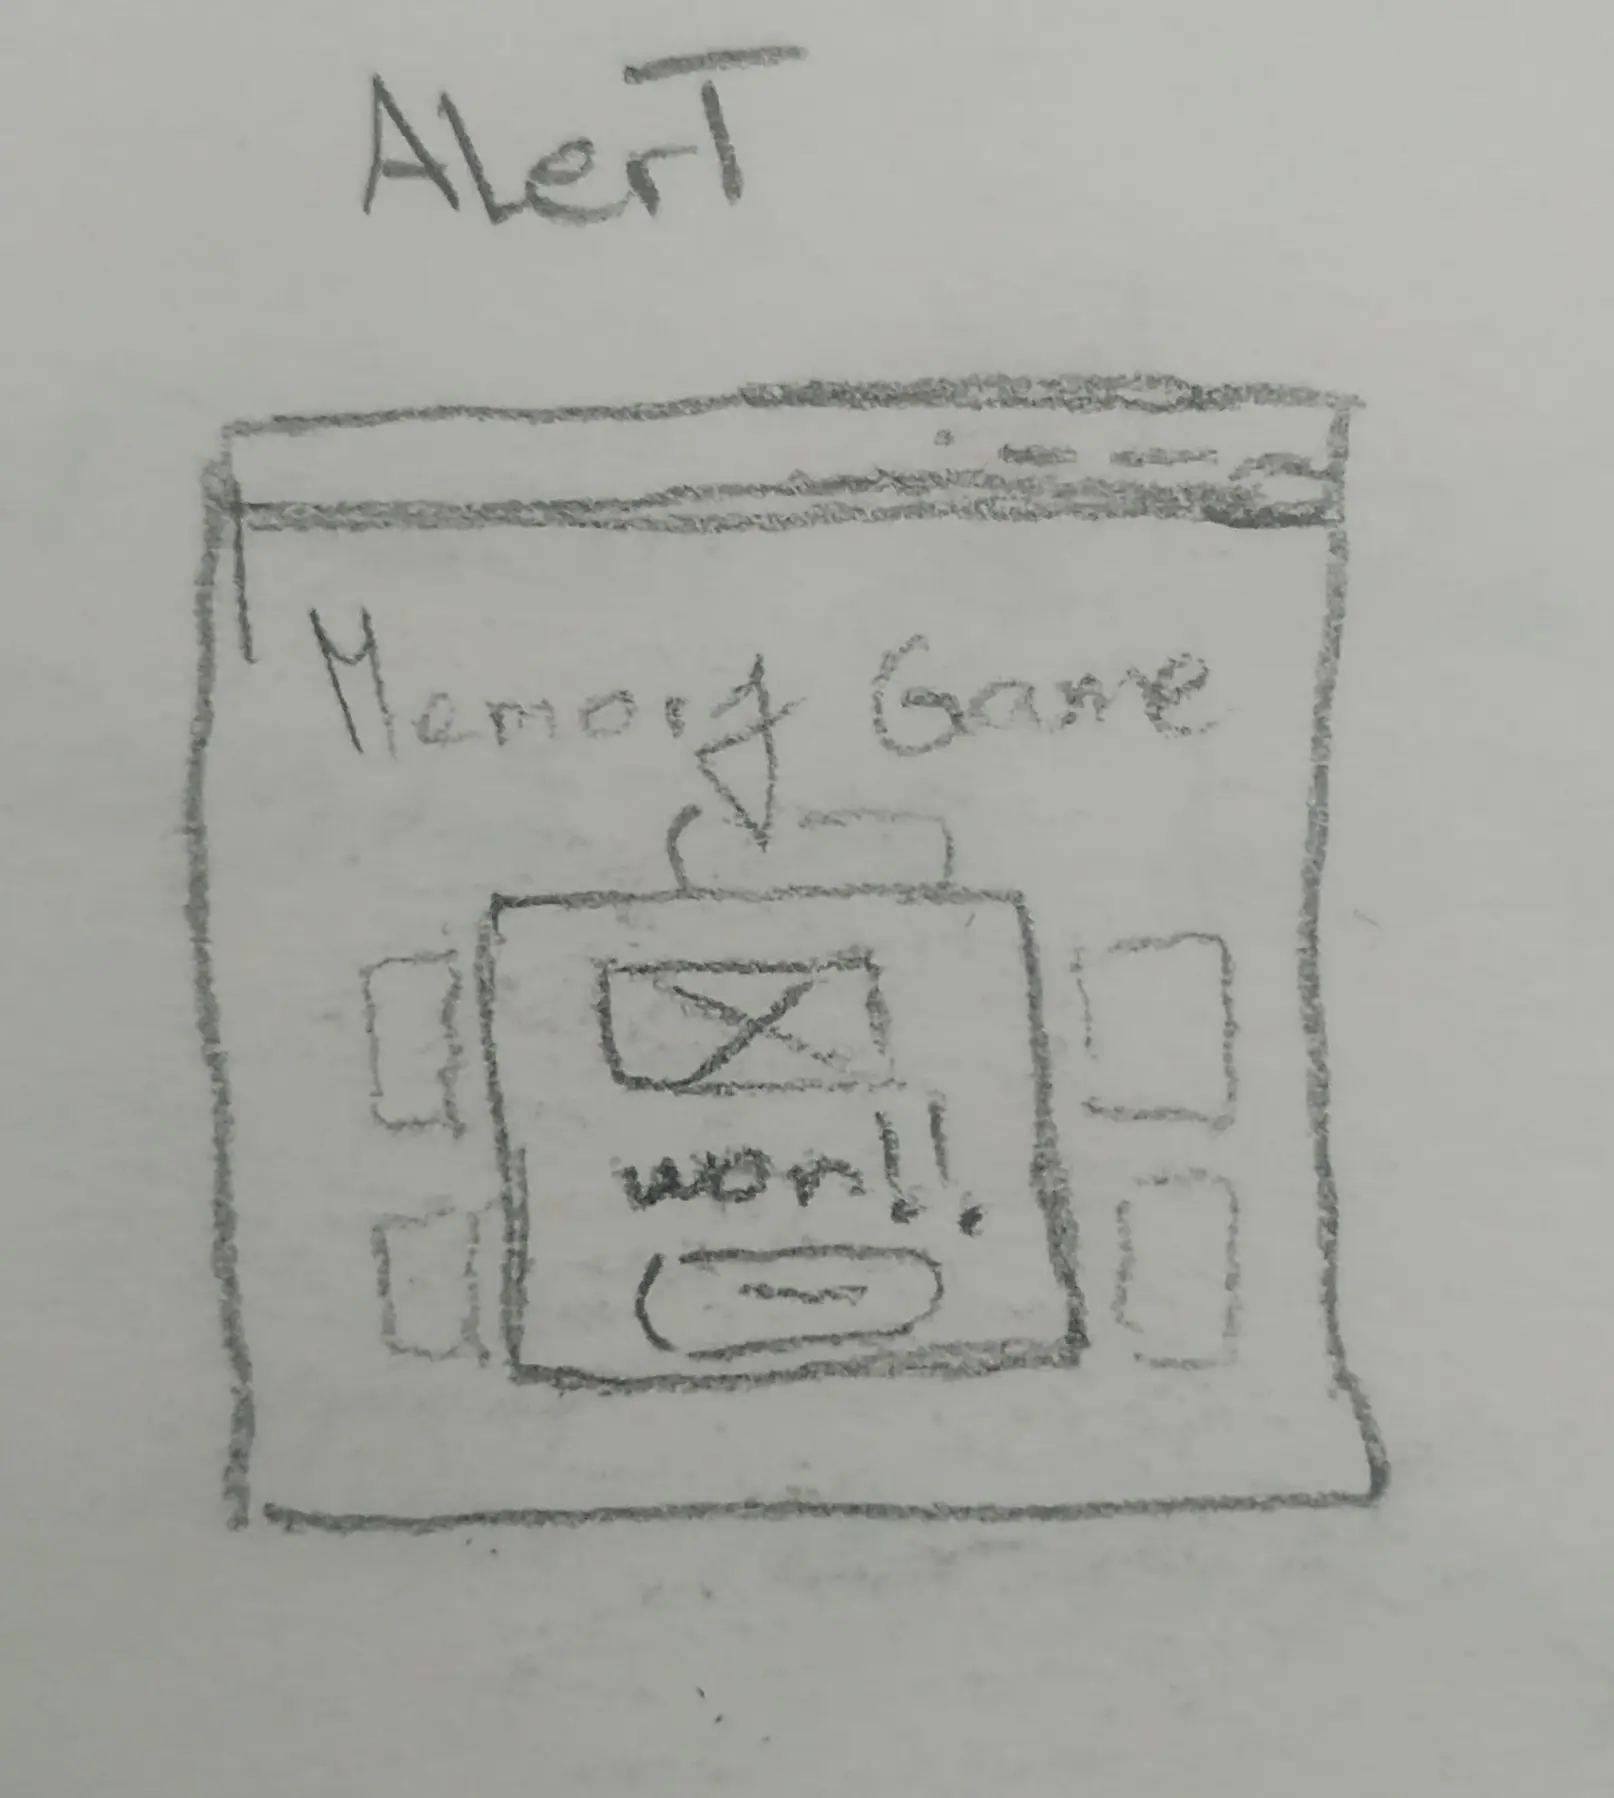 AlerT
Memory Game
won!!